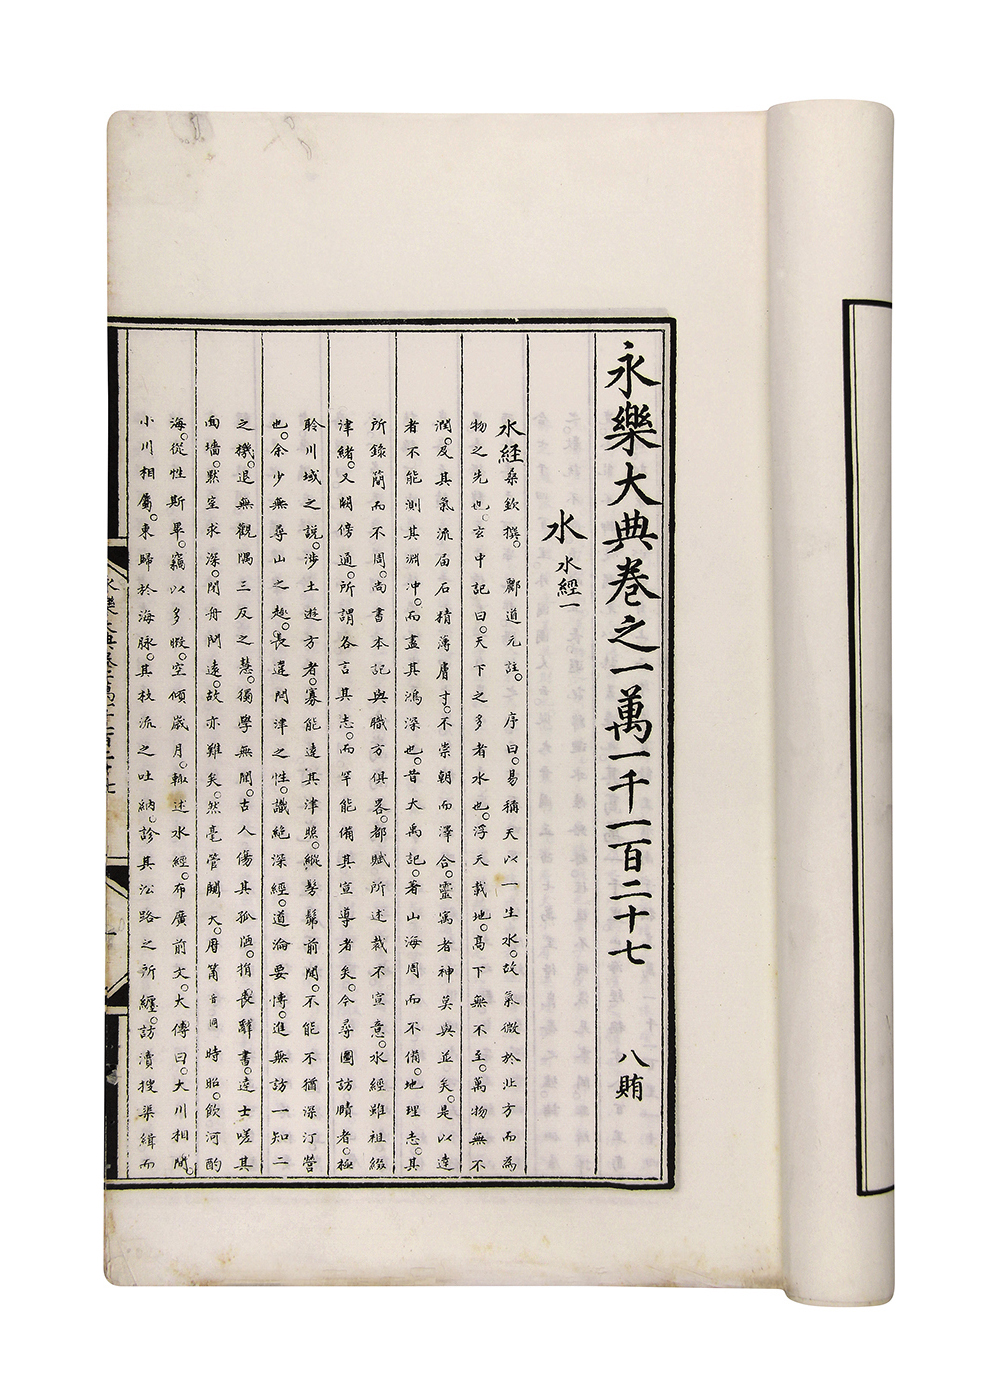 永樂大典卷之一萬一千一百二十七 八賄
水 水經一
水經桑欽撰。酈道元註。序曰。易稱天以一生水。故氣微於北方而為
物之先也。玄中記曰。天下之多者水也。浮天載地。高下無不至。萬物無不
潤。及其氣流屆石精薄膚寸。不崇朝而澤合。靈寓者神莫與並矣。是以達
者不能測其淵沖。而盡其鴻深也。昔大禹記。著山海周而不備。地理志。其
所錄簡而不周。尚書本記與職方俱畧。都賦所述裁不宣意。水經雖祖綴
津緒。又闕傍通。所謂各言其志。而罕能備其宣導者矣。今尋圖訪賾者。極
聆川域之說。涉土遊方者。寡能達其津照。縱髣髴前聞。不能不猶深汀營
也。余少無尋山之趣。長違問津之性。識絶深經。道淪要博。進無訪一知二
之機。退無觀隅三反之慧。獨學無聞。古人傷其孤陋。捐喪辭書。達士嗟其
面墻。默室求深。閉舟問遠。故亦難矣。然毫管闚天。厝筩音同時昭。飲河酌
海。從性斯畢。竊以多暇。空傾歲月。輒述水經。布廣前文。大傳曰。大川相間。
小川相屬。東歸於海脉。其枝流之吐納。診其㳂路之所纏。訪瀆搜渠緝而